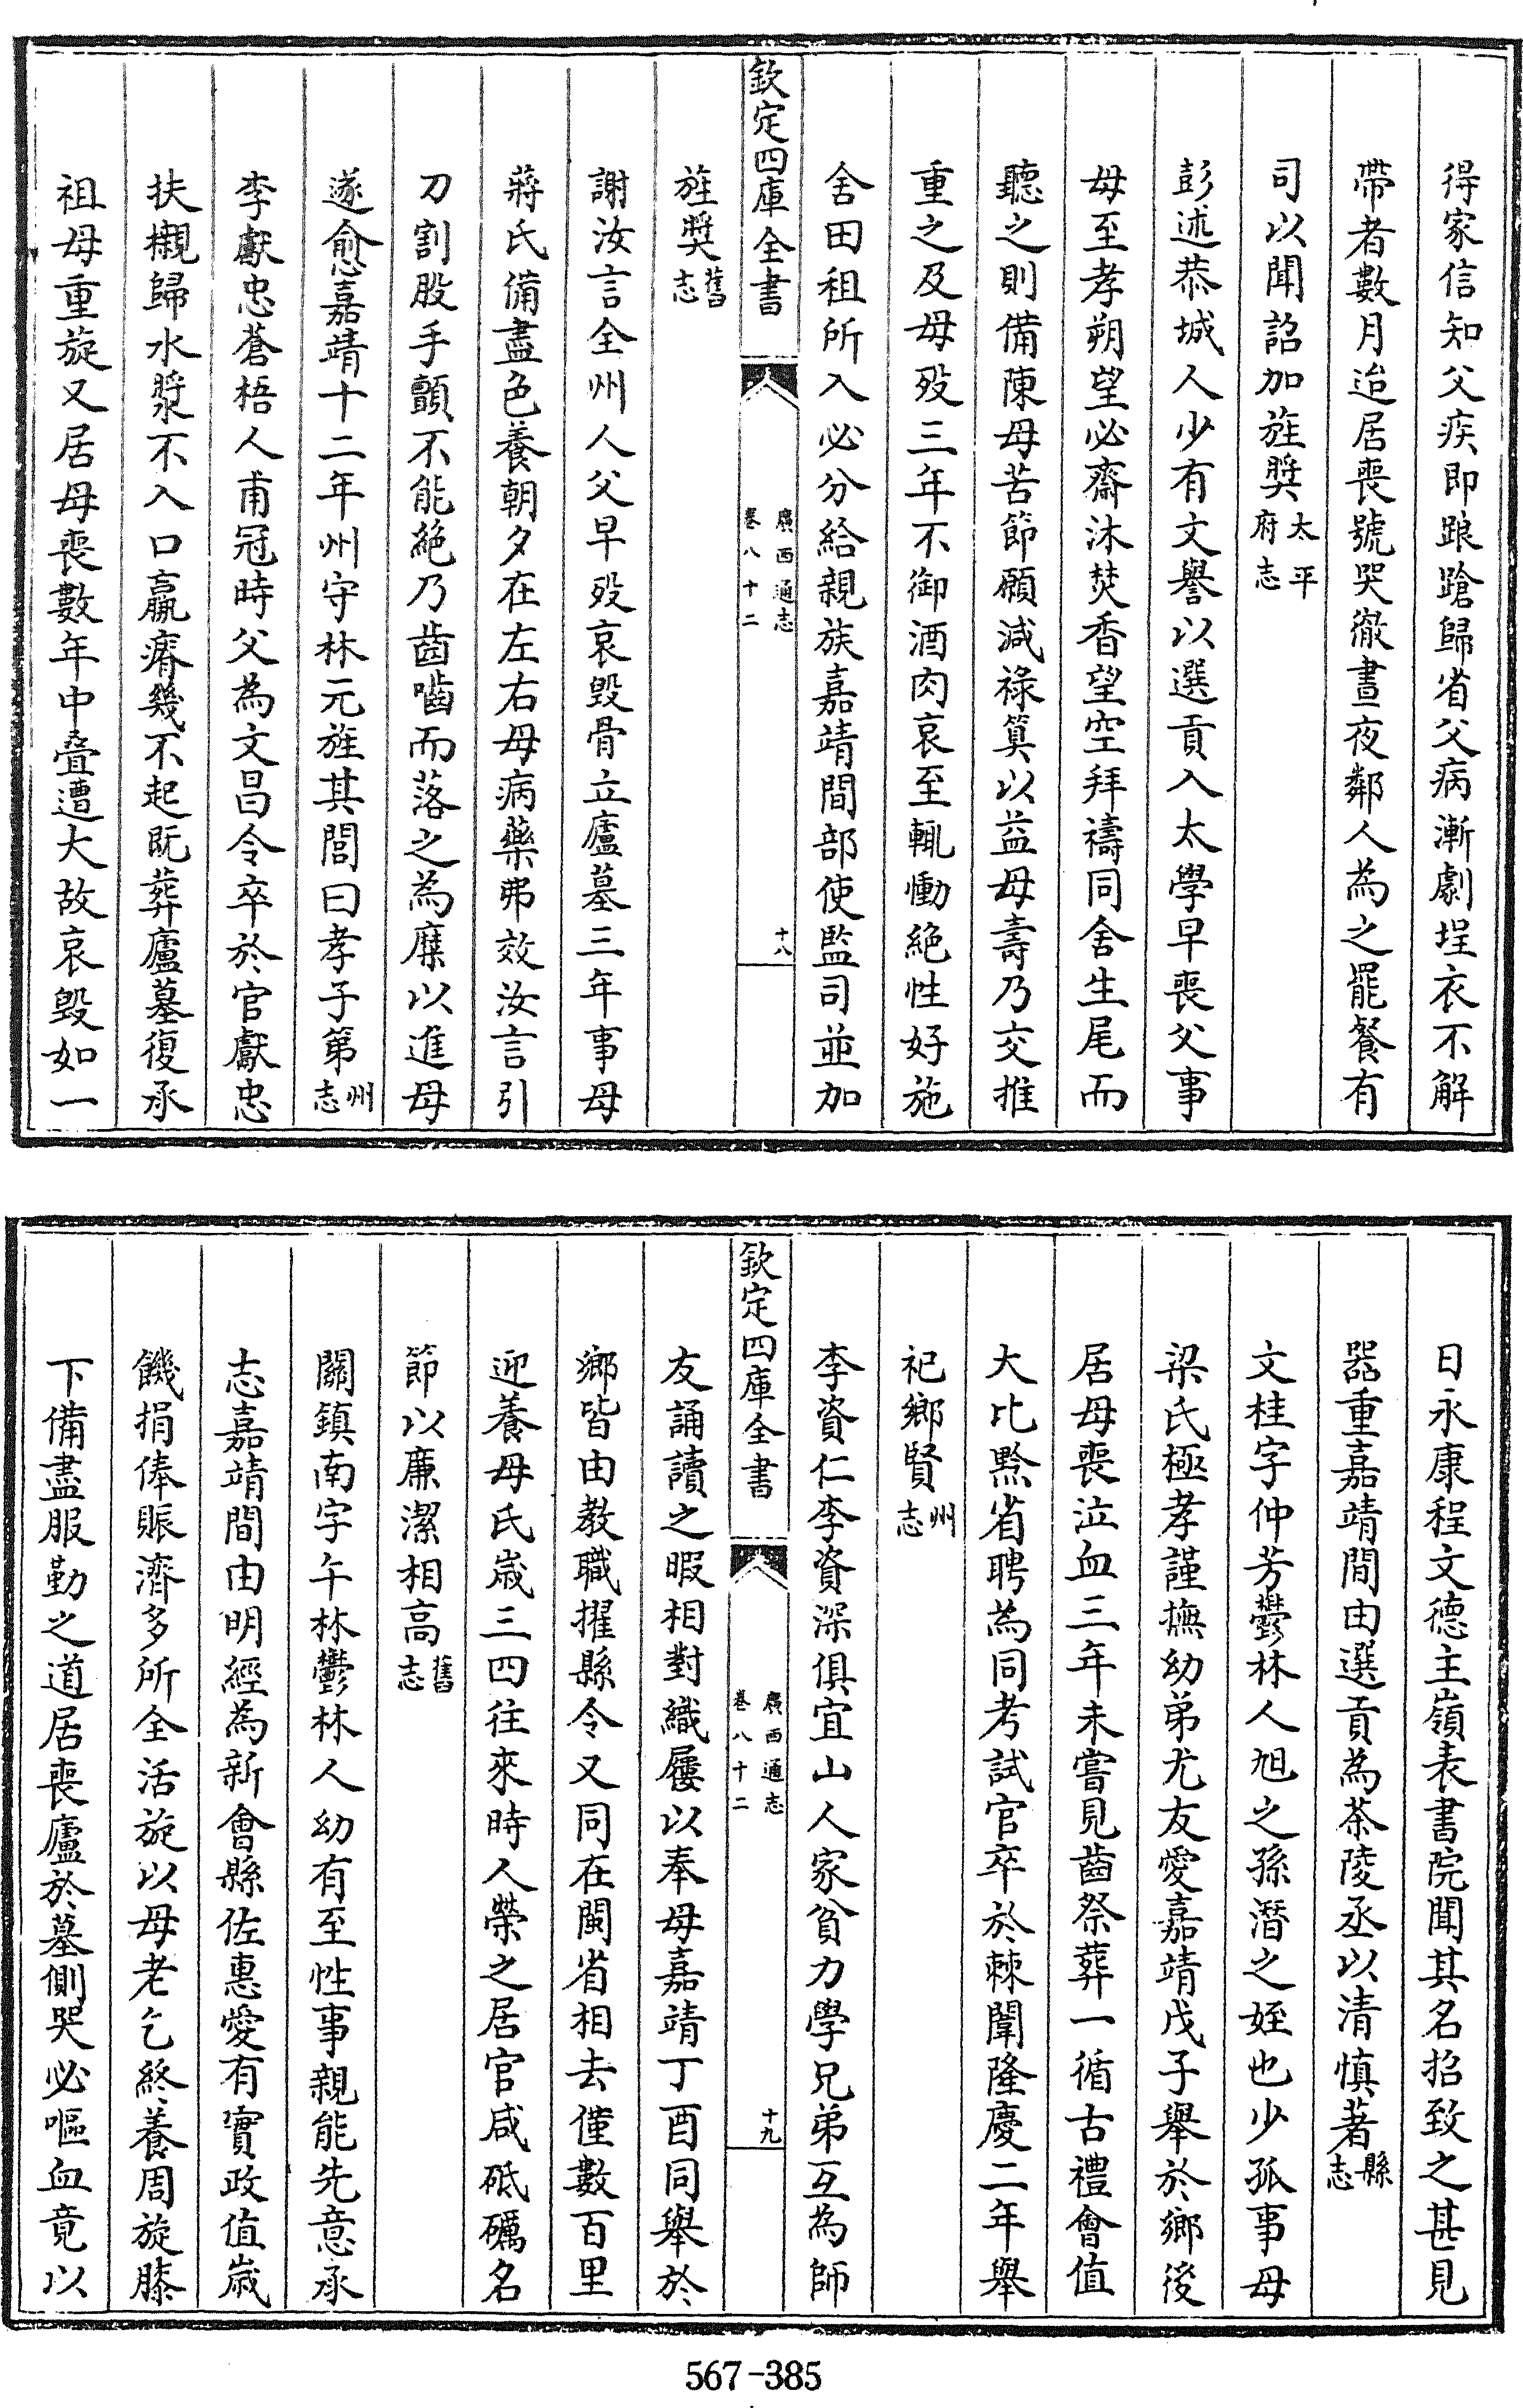 得家信知父疾即踉蹌歸省父病漸劇埕衣不解
帶者數月迨居喪號哭徹晝夜鄰人為之罷餐有
司以聞詔加旌奬太平府志
彭述恭城人少有文譽以選貢入太學早喪父事
母至孝朔望必齋沐焚香望空拜禱同舍生尾而
聽之則備陳母苦節願減祿筭以益母壽乃交推
重之及母歿三年不御酒肉哀至輒慟絶性好施
舍田租所入必分給親族嘉靖間部使監司並加
欽定四庫全書
廣西通志
卷八十二
十八
旌奬舊志
謝汝言全州人父早歿哀毀骨立廬墓三年事母
蔣氏備盡色養朝夕在左右母病藥弗效汝言引
刀割股手顫不能絶乃齒嚙而落之為糜以進母
遂愈嘉靖十二年州守林元旌其閭曰孝子第州志
李獻忠蒼梧人甫冠時父為文昌令卒於官獻忠
扶櫬歸水漿不入口羸瘠幾不起既葬廬墓復承
祖母重旋又居母喪數年中疊遭大故哀毀如一
日永康程文德主嶺表書院聞其名招致之甚見
器重嘉靖間由選貢為茶陵丞以清慎著縣志
文桂字仲芳鬱林人旭之孫潛之姪也少孤事母
梁氏極孝謹撫幼弟尤友愛嘉靖戊子舉於鄉後
居母喪泣血三年未嘗見齒祭葬一循古禮會值
大比黔省聘為同考試官卒於棘闈隆慶二年舉
祀鄉賢州志
李資仁李資深俱宜山人家貧力學兄弟互為師
欽定四庫全書
廣西通志
卷八十二
十九
友誦讀之暇相對織屨以奉母嘉靖丁酉同舉於
鄉皆由教職擢縣令又同在閩省相去僅數百里
迎養母氏歲三四往來時人榮之居官咸砥礪名
節以廉潔相高舊志
關鎮南字午林鬱林人幼有至性事親能先意承
志嘉靖間由明經為新會縣佐惠愛有實政值歲
饑捐俸賑濟多所全活旋以母老乞終養周旋膝
下備盡服勤之道居喪廬於墓側哭必嘔血竟以
567-385